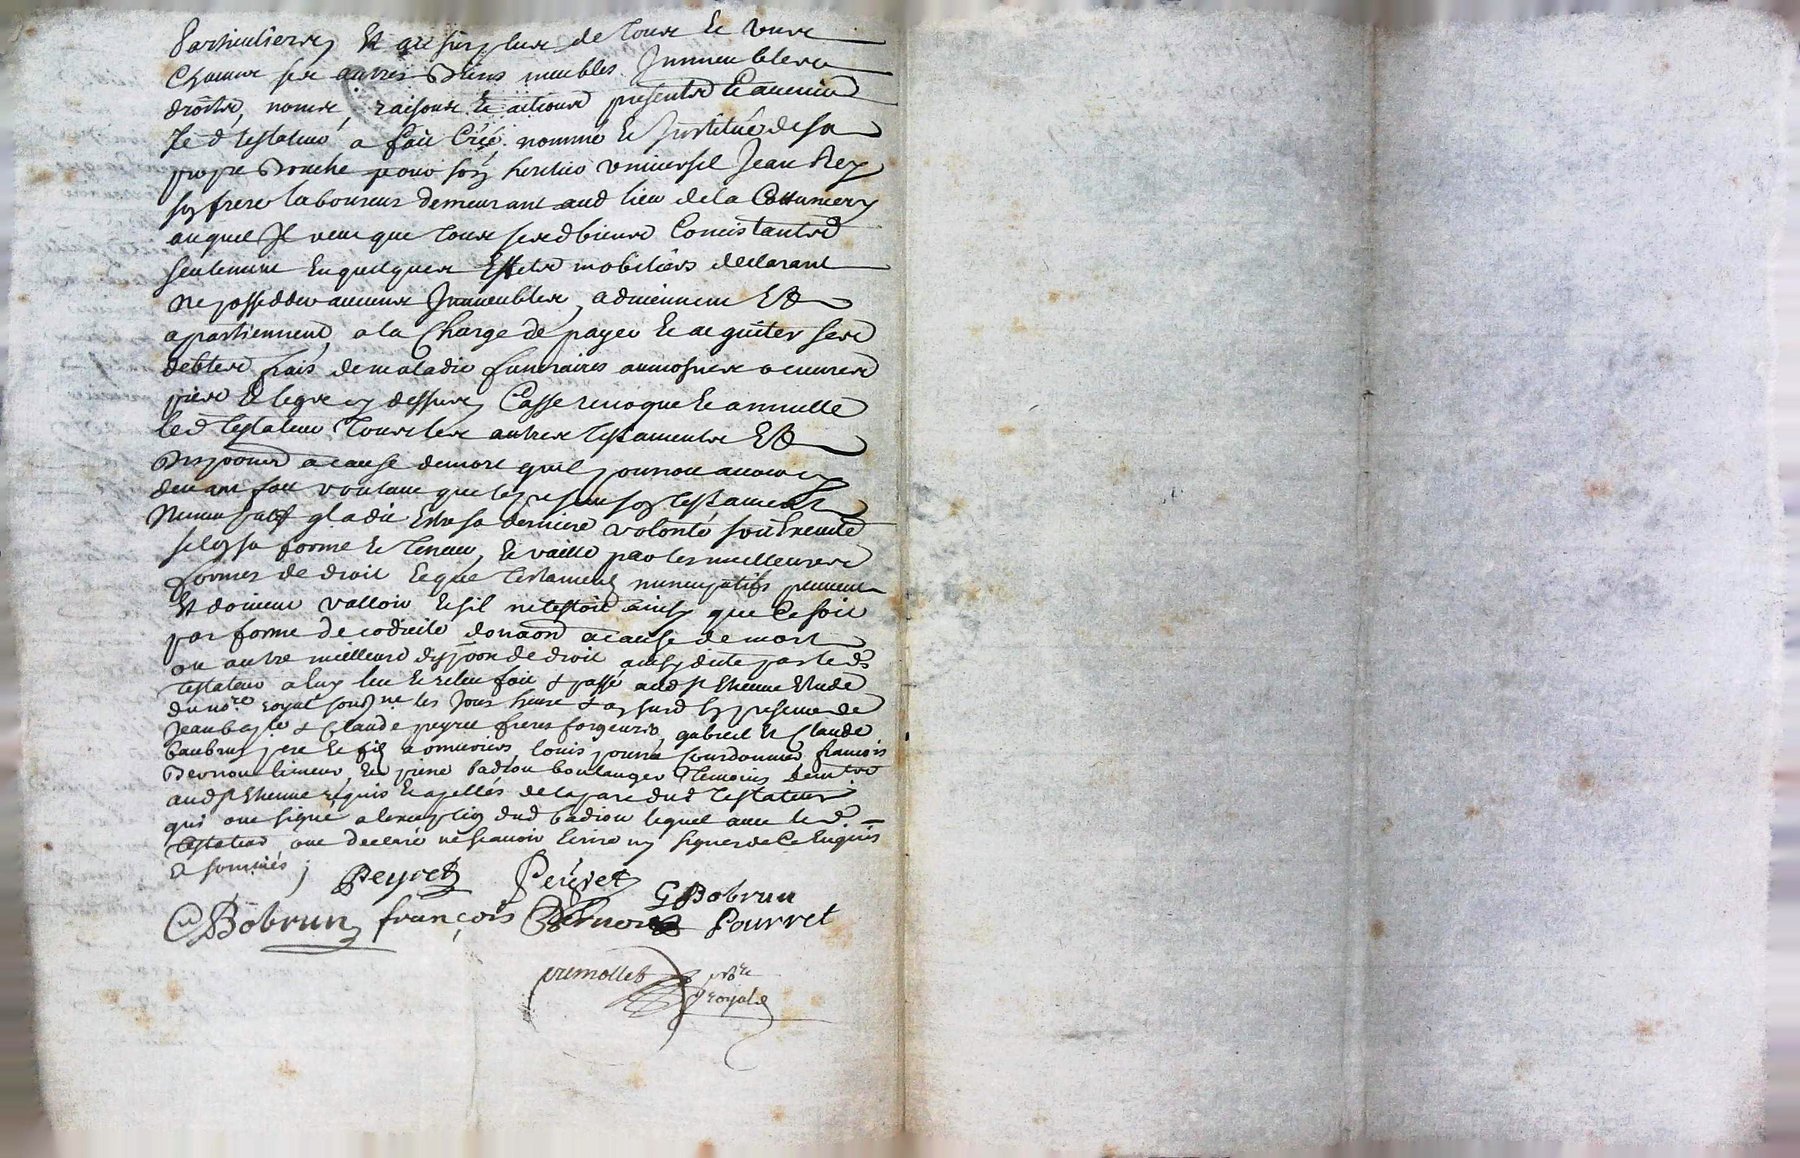 particuliers, Et au surplus de tous Et uns
Chacuns ses autres Biens meubles Immeubles
droits, noms, raisons Et actions presents Et avenir
Le d testateur a fait Créé nommé Et Institué de sa
propre Bouche pour son heritier universel Jean Rey
son frere laboureur demeurant aud lieu de la
auquel Il veut que tous sesd biens Concistants
seulement En quelques Effets mobiliers declarant
ne posseder aucuns Immeubles, adviennent Et
apartiennent, a la Charge de payer Et acquiter ses
debtes frais de maladie funeraires aumosnes oeuvres
pies Et legs cy dessus, Casse revoque Et annulle
led testateur tous les autres testaments Et
a cause de mort quil pourroit avoir cy
devant fait voulant que le present son testament
nuncupatif quil a dit Estre sa derniere volonté soit Executé
selon sa forme Et teneur, Et vaille par les meilleures
formes de droit Et que testaments nuncupatifs peuvent
Et doivent valloir Et sil ne testoit ainsy que Ce soit
par forme de codicile donaon a cause de mort
ou autre meilleure de droit ainsy dicté par le d
testateur a luy leu Et releu fait & passé aud St Etienne Etude
du nore royal sousigné les jours heure & an susd En presence de
Jean & Claude peyret freres forgeurs, gabriel Et Claude
baubrun pere Et fils armuriers, louis pourret Courdonnier françois
limeur, Et piere badiou boulanger temoins demts
aud St Etienne requis Et apellés de la part dud Testateur
qui ont signé a lexception dud badiou lequel avec le d
testateur ont declaré ne scavoir Ecrire ny signer de Ce Enquis
& sommés ;
Peyret Peyret G Bobrun
Cl Bobrun françois Pourret
nore
royal